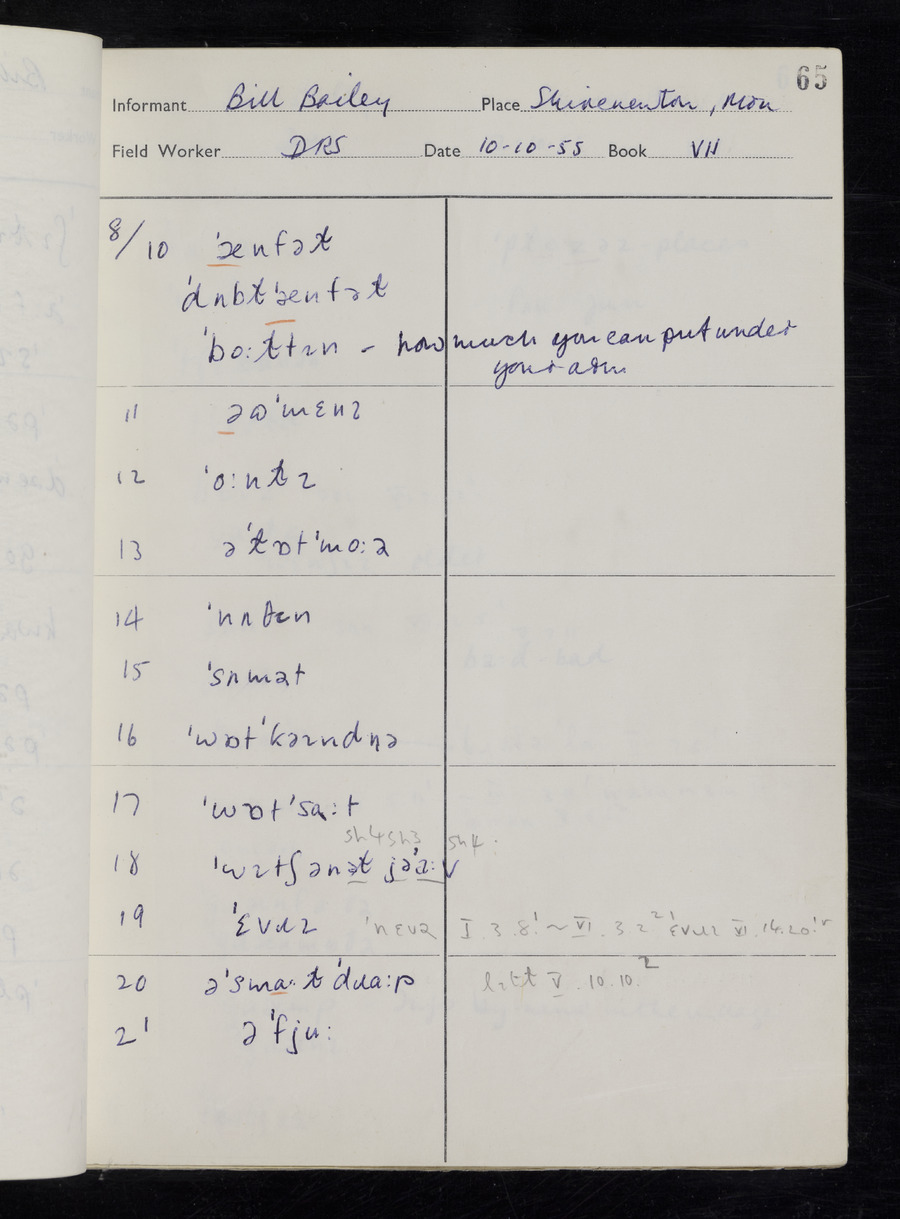 65
Informant Bill Bailey Place Skirenenton, Mon
Field Worker DRS Date 10-10-55 Book VII
8/10 ˈænfət
ˈdʌbtˈænfət
ˈbo:ttɪn - how much you can put under
your arm
11 əɷˈmɛnɪ
12 ˈo:ntɪ
13 əˈtɒtˈmo:ə
14 ˈnʌtɪn
15 ˈsʌmət
16 ˈwɒtˈkəɪndɳə
17 ˈwɒtˈsa:t
sh4 sh3 sh4
18 ˈwɪtʃənət jəˈa:v
19 ˈɛvʁɪ ˈnɛvə I.3.8! ~ VI.3.2² ˈɛvʁɪ XI.14.20!
20 əˈsma:tˈdʁa:p lɪtt V.10.10.²
21 əˈfju: